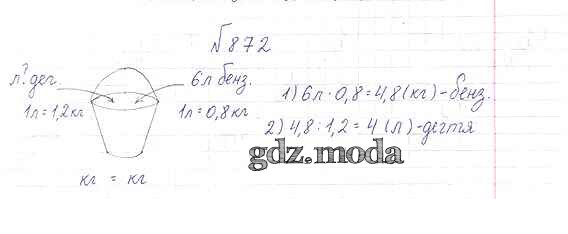 №872
л? дег.
6л бенз.
1л=1,2кг
1л=0,8кг
кг = кг
1) 6л · 0,8=4,8(кг)-бенз.
2) 4,8:1,2=4 (л)-дегтя
gdz.moda